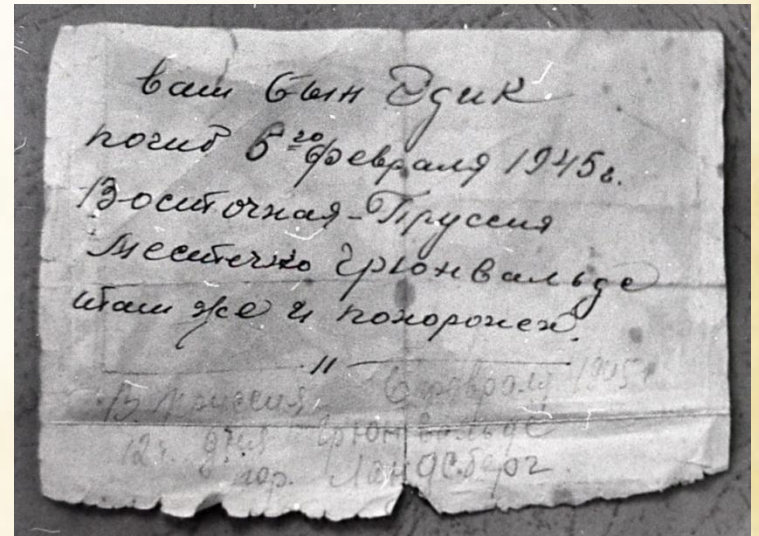 ваш сын Эдик
погиб 6го февраля 1945г.
Восточная-Пруссия
Местечко Грюнвальде
там же и похоронен.
〃
В. Пруссия, 6 февраля 1945г
12ч. дня Грюнвальде
гор. Ландсберг.